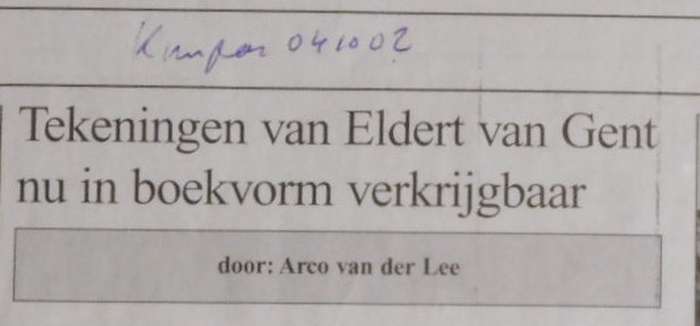 041002
Tekeningen van Eldert van Gent
nu in boekvorm verkrijgbaar
door: Arco van der Lee